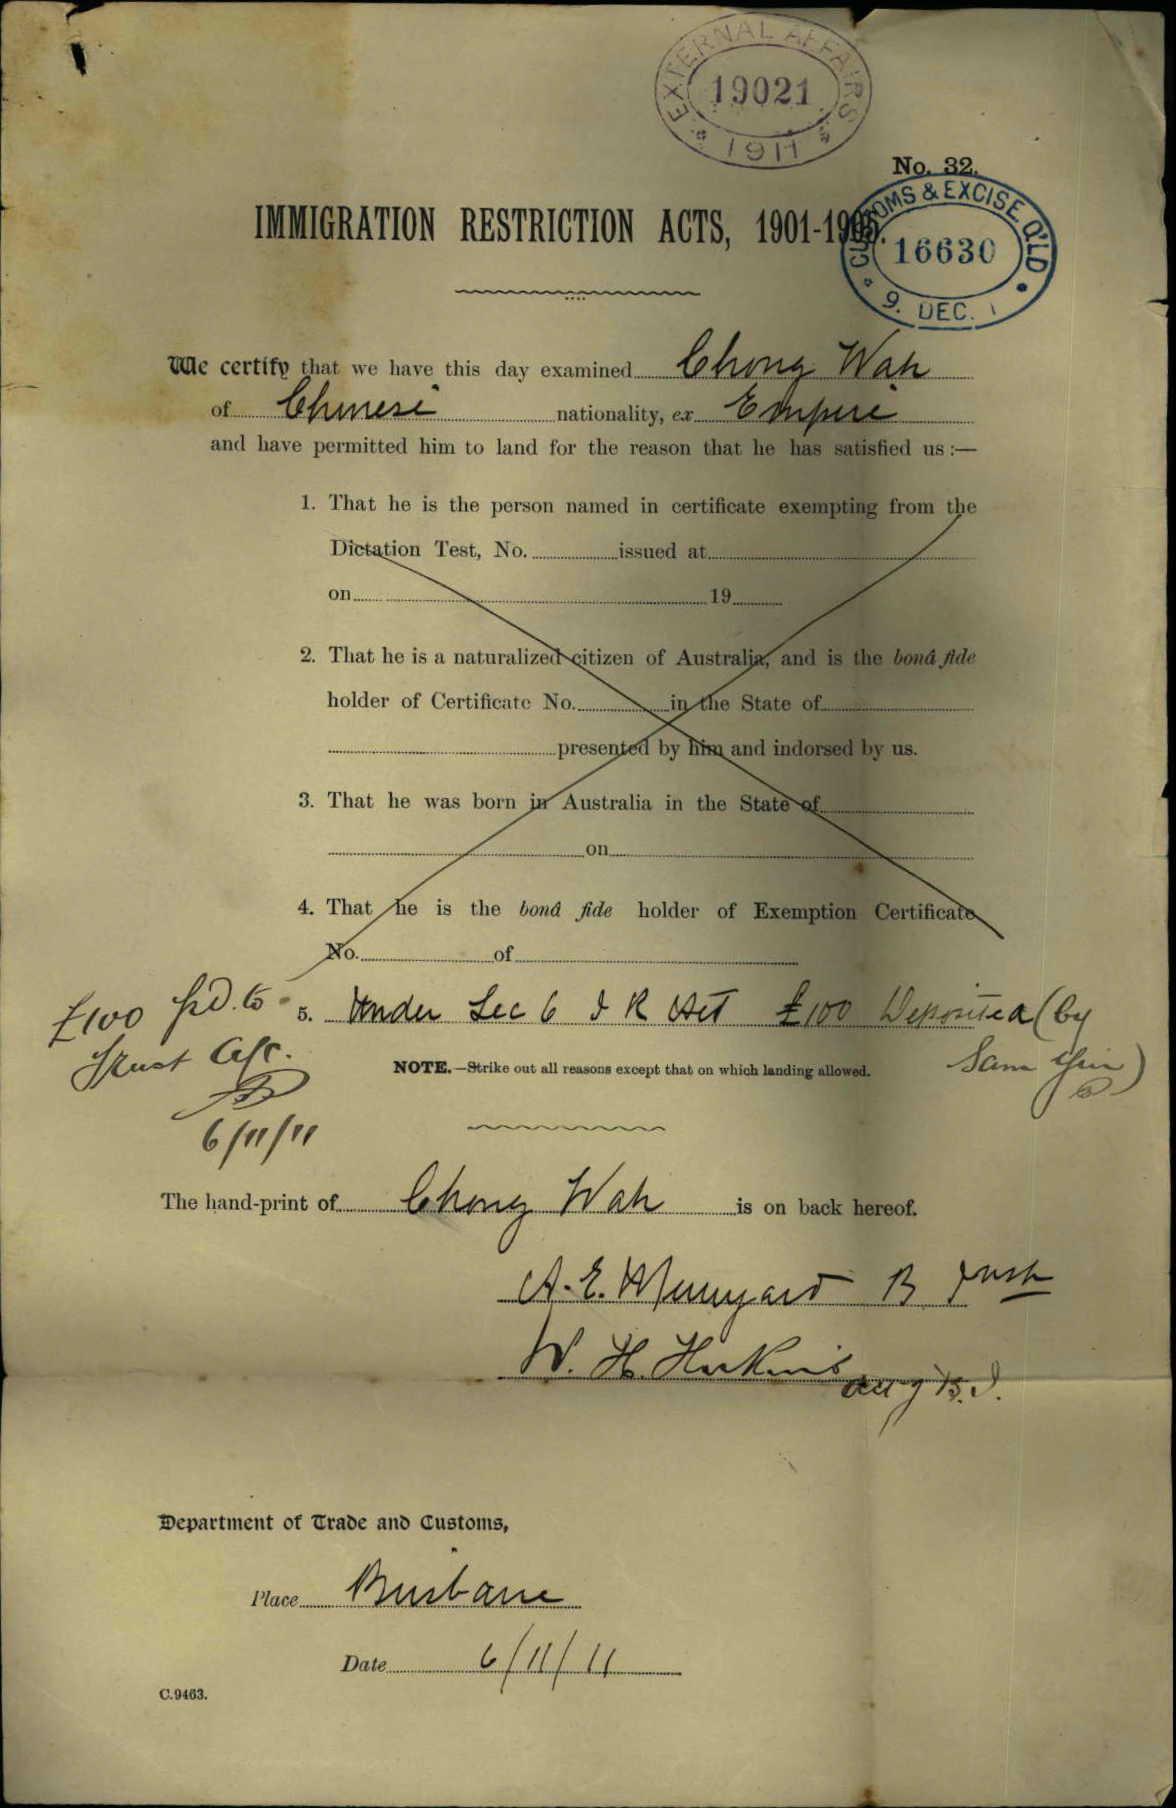 EXTERNAL AFFAIRS
19021
1911
No. 32.
CUSTOMS & EXCISE Q'LD
16630
9. DEC. 1
IMMIGRATION RESTRICTION ACTS, 1901-1905.
We certify that we have this day examined Chong Wah
of Chinese nationality, ex Empire
and have permitted him to land for the reason that he has satisfied us :—
1. That he is the person named in certificate exempting from the
Dictation Test, No. issued at
on 19
2. That he is a naturalized citizen of Australia, and is the bonâ fide
holder of Certificate No. in the State of
presented by him and indorsed by us.
3. That he was born in Australia in the State of
on
4. That he is the bonâ fide holder of Exemption Certificate
No. of
£100 pd. to
Trust a/c.
6/11/11
5. Under Sec 6 I R Act £100 Deposited (by
Sam )
NOTE.—Strike out all reasons except that on which landing allowed.
The hand-print of Chong Wah is on back hereof.
A. E. B
W. H.
Department of Trade and Customs,
Place Brisbane
Date 6/11/11
C.9463.